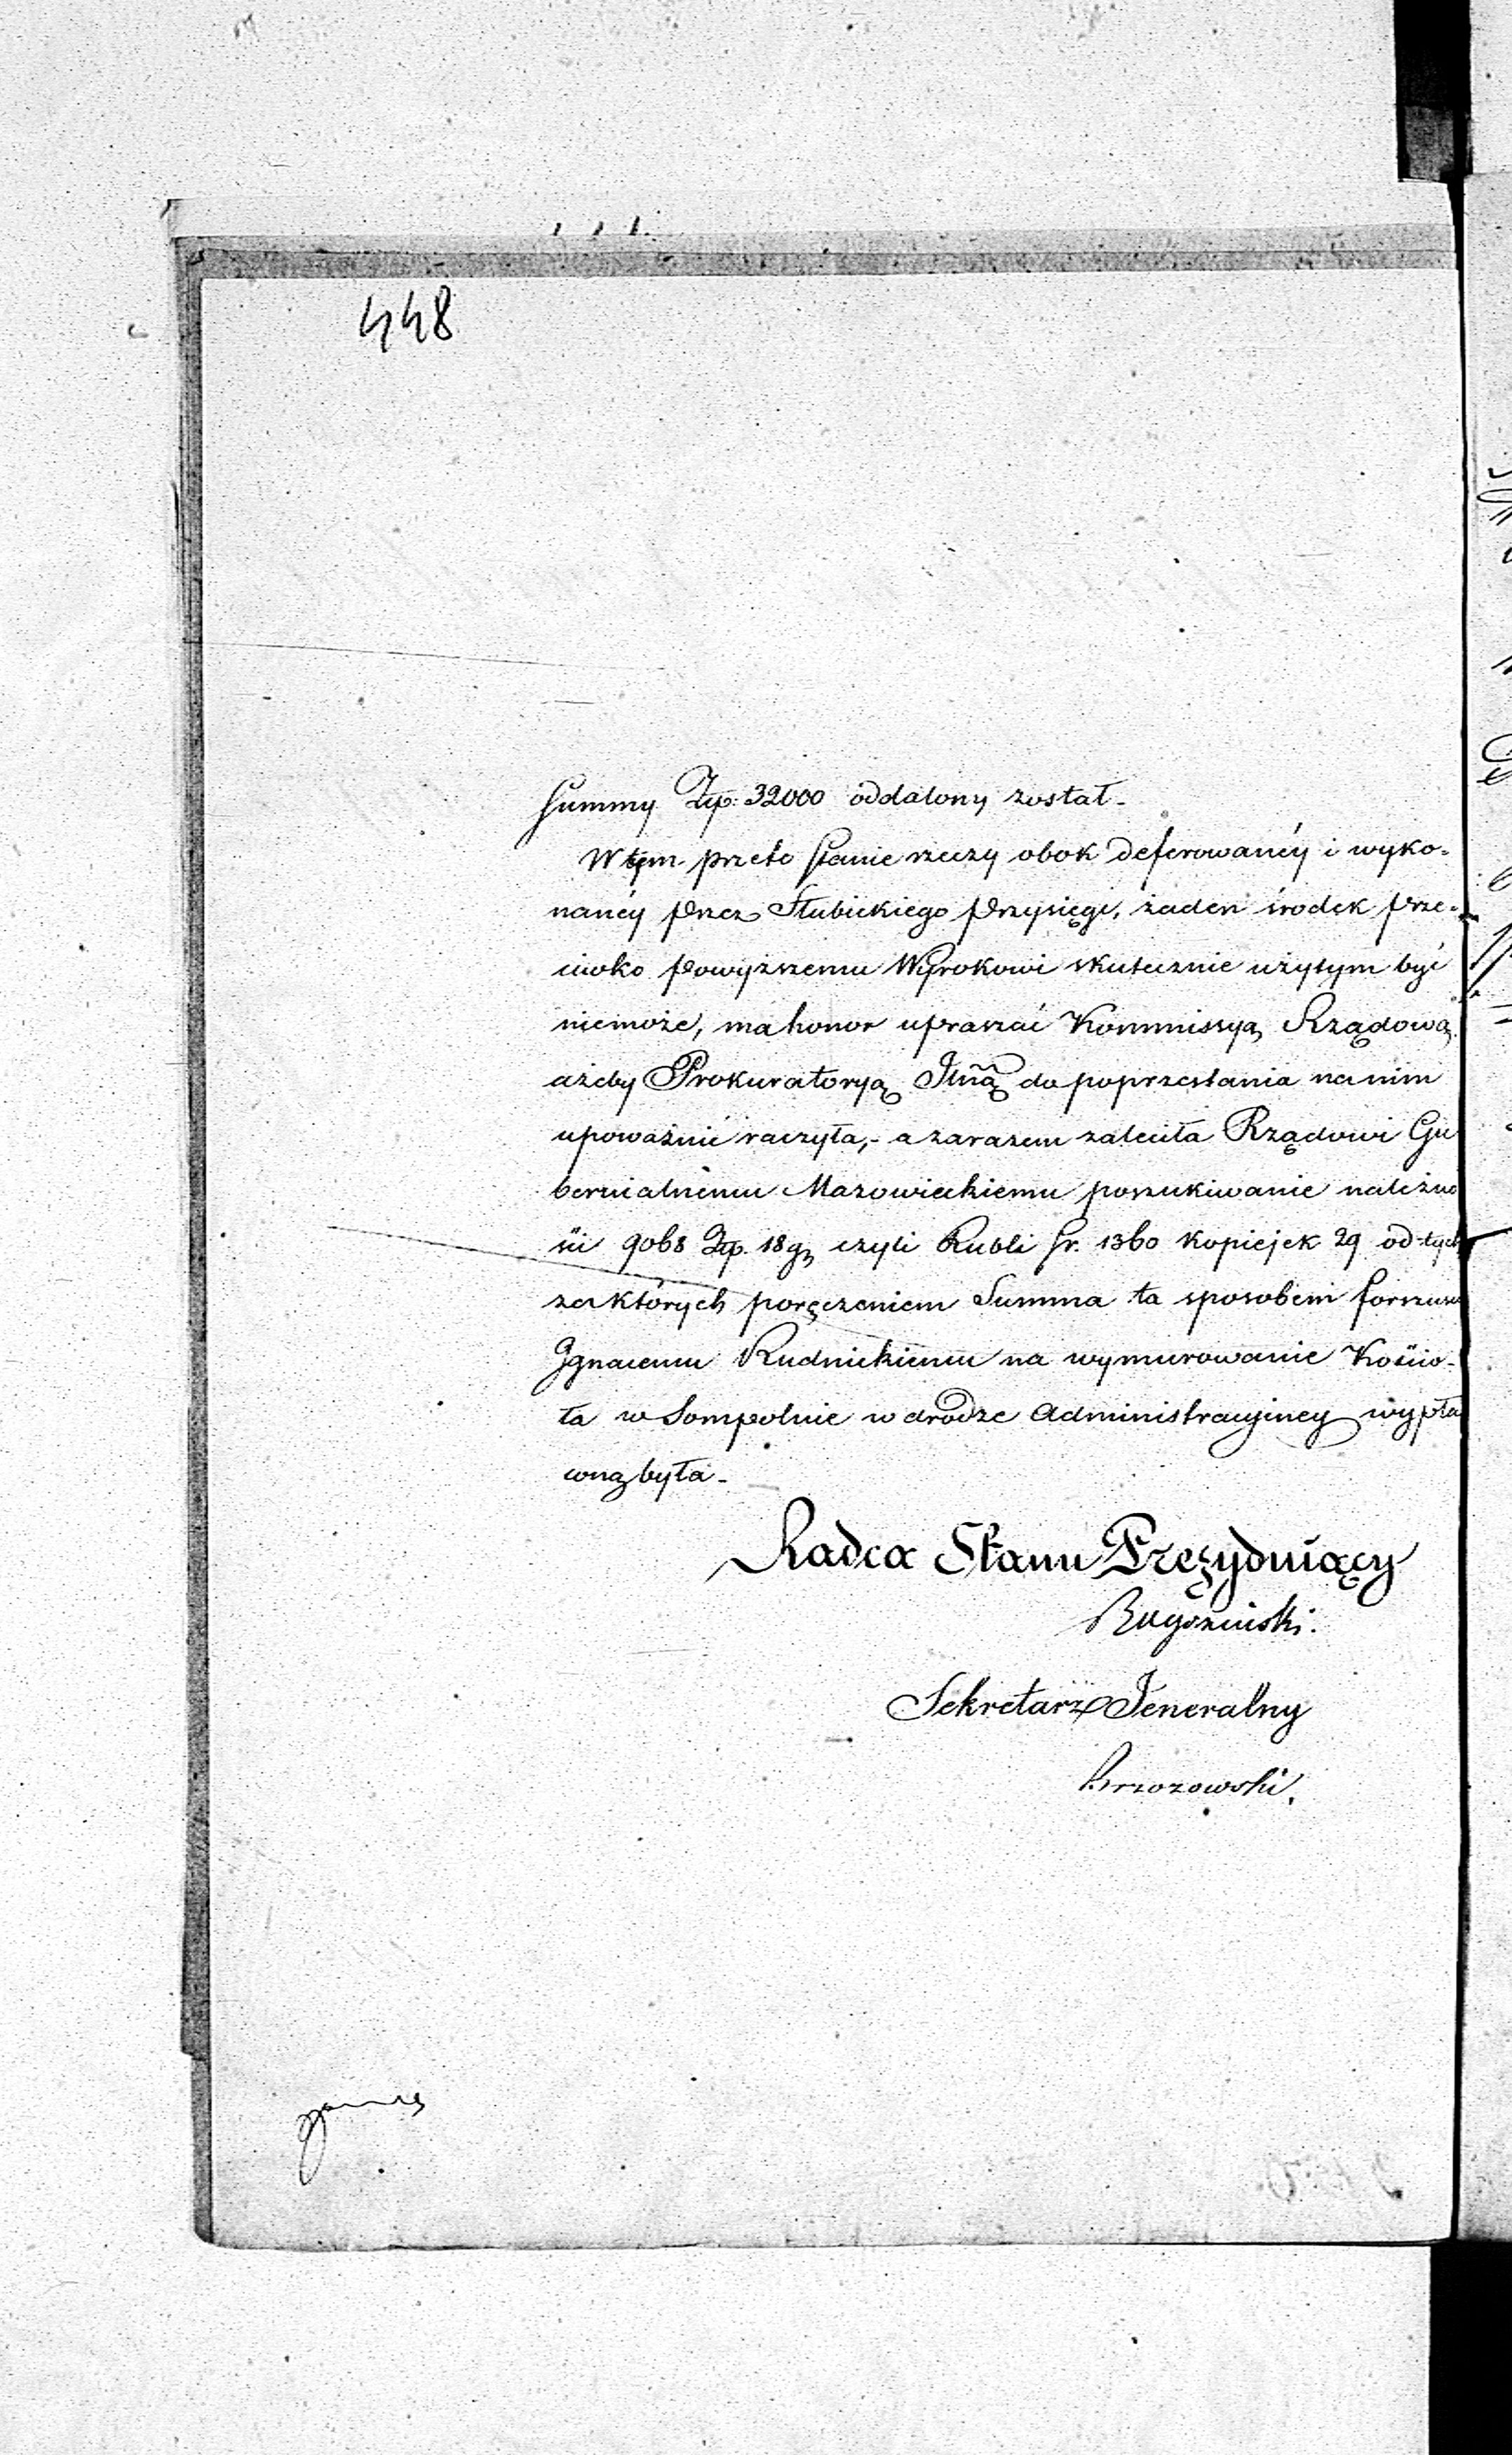 448
Summy Złp. 32000 oddalony został -
W tym przeto stanie rzeczy obok deferowanéy i wyko-
nanéy przez Słubickiego przysięgi, żaden środek prze-
ciwko powyższemu Wyrokowi skutecznie użytym być
niemoże, ma honor upraszać Kommissyą Rządową
ażeby Prokuratoryą Jlną do poprzestania na nim
upoważnić raczyła, - a zarazem zaleciła Rządowi Gu
bernialnemu Mazowieckiemu poszukiwanie należno
ści 9068 Złp. 18 gr czyli Rubli Sr. 1360 Kopiejek 29 od tych
za których poręczeniem Summa ta sposobem forszusu
Ignacemu Rudnickiemu na wymurowanie Kościo-
ła w Sompolnie w drodze Administracyjney wypła
coną była -
Radca Stanu Prezyduiący
Sekretarz Jeneralny
Brzozowski.